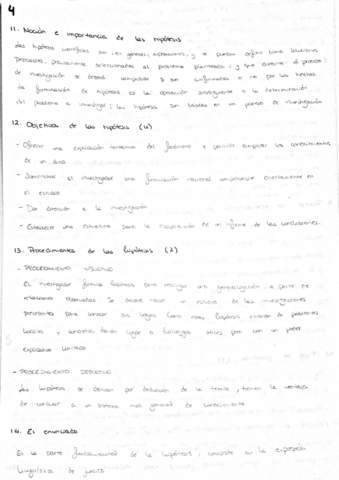 4
11. Noción e importancia de las hipótesis
Las hipótesis científicas son, en general, suposiciones, y se pueden definir como soluciones
propuestas, previamente seleccionadas al problema planteado, y que durante el proceso
de investigación se deberá comprobar si son confirmadas o no por los hechos.
La formulación de hipótesis es la operación subsiguiente a la determinación
del problema a investigar; las hipótesis son básicas en un proceso de investigación
12. Objetivos de las hipótesis (4)
- Ofrecer una explicación del fenómeno y permite ampliar los conocimientos
de un área.
- Suministrar al investigador una formulación relacional comprobable directamente en
el estudio
- Dar dirección a la investigación
- Establecer una estructura para la de un informe de las conclusiones.
13. Procedimientos de las hipótesis (2)
- PROCEDIMIENTO INDUCTIVO
El investigador formula hipótesis para realizar una generalización a partir de
relaciones observadas. Se deberá hacer un estudio de las investigaciones
precedentes para conocer los Como estas hipótesis
y lugar a hallazgos útiles pero con un poder
explicativo limitado
- PROCEDIMIENTO DEDUCTIVO
Las hipótesis se derivan por deducción de la teoría, tienen la ventaja
de conducir a un sistema más general de conocimiento.
14. El enunciado
Es la parte fundamental de la hipótesis, consiste en la exposición
lingüística de